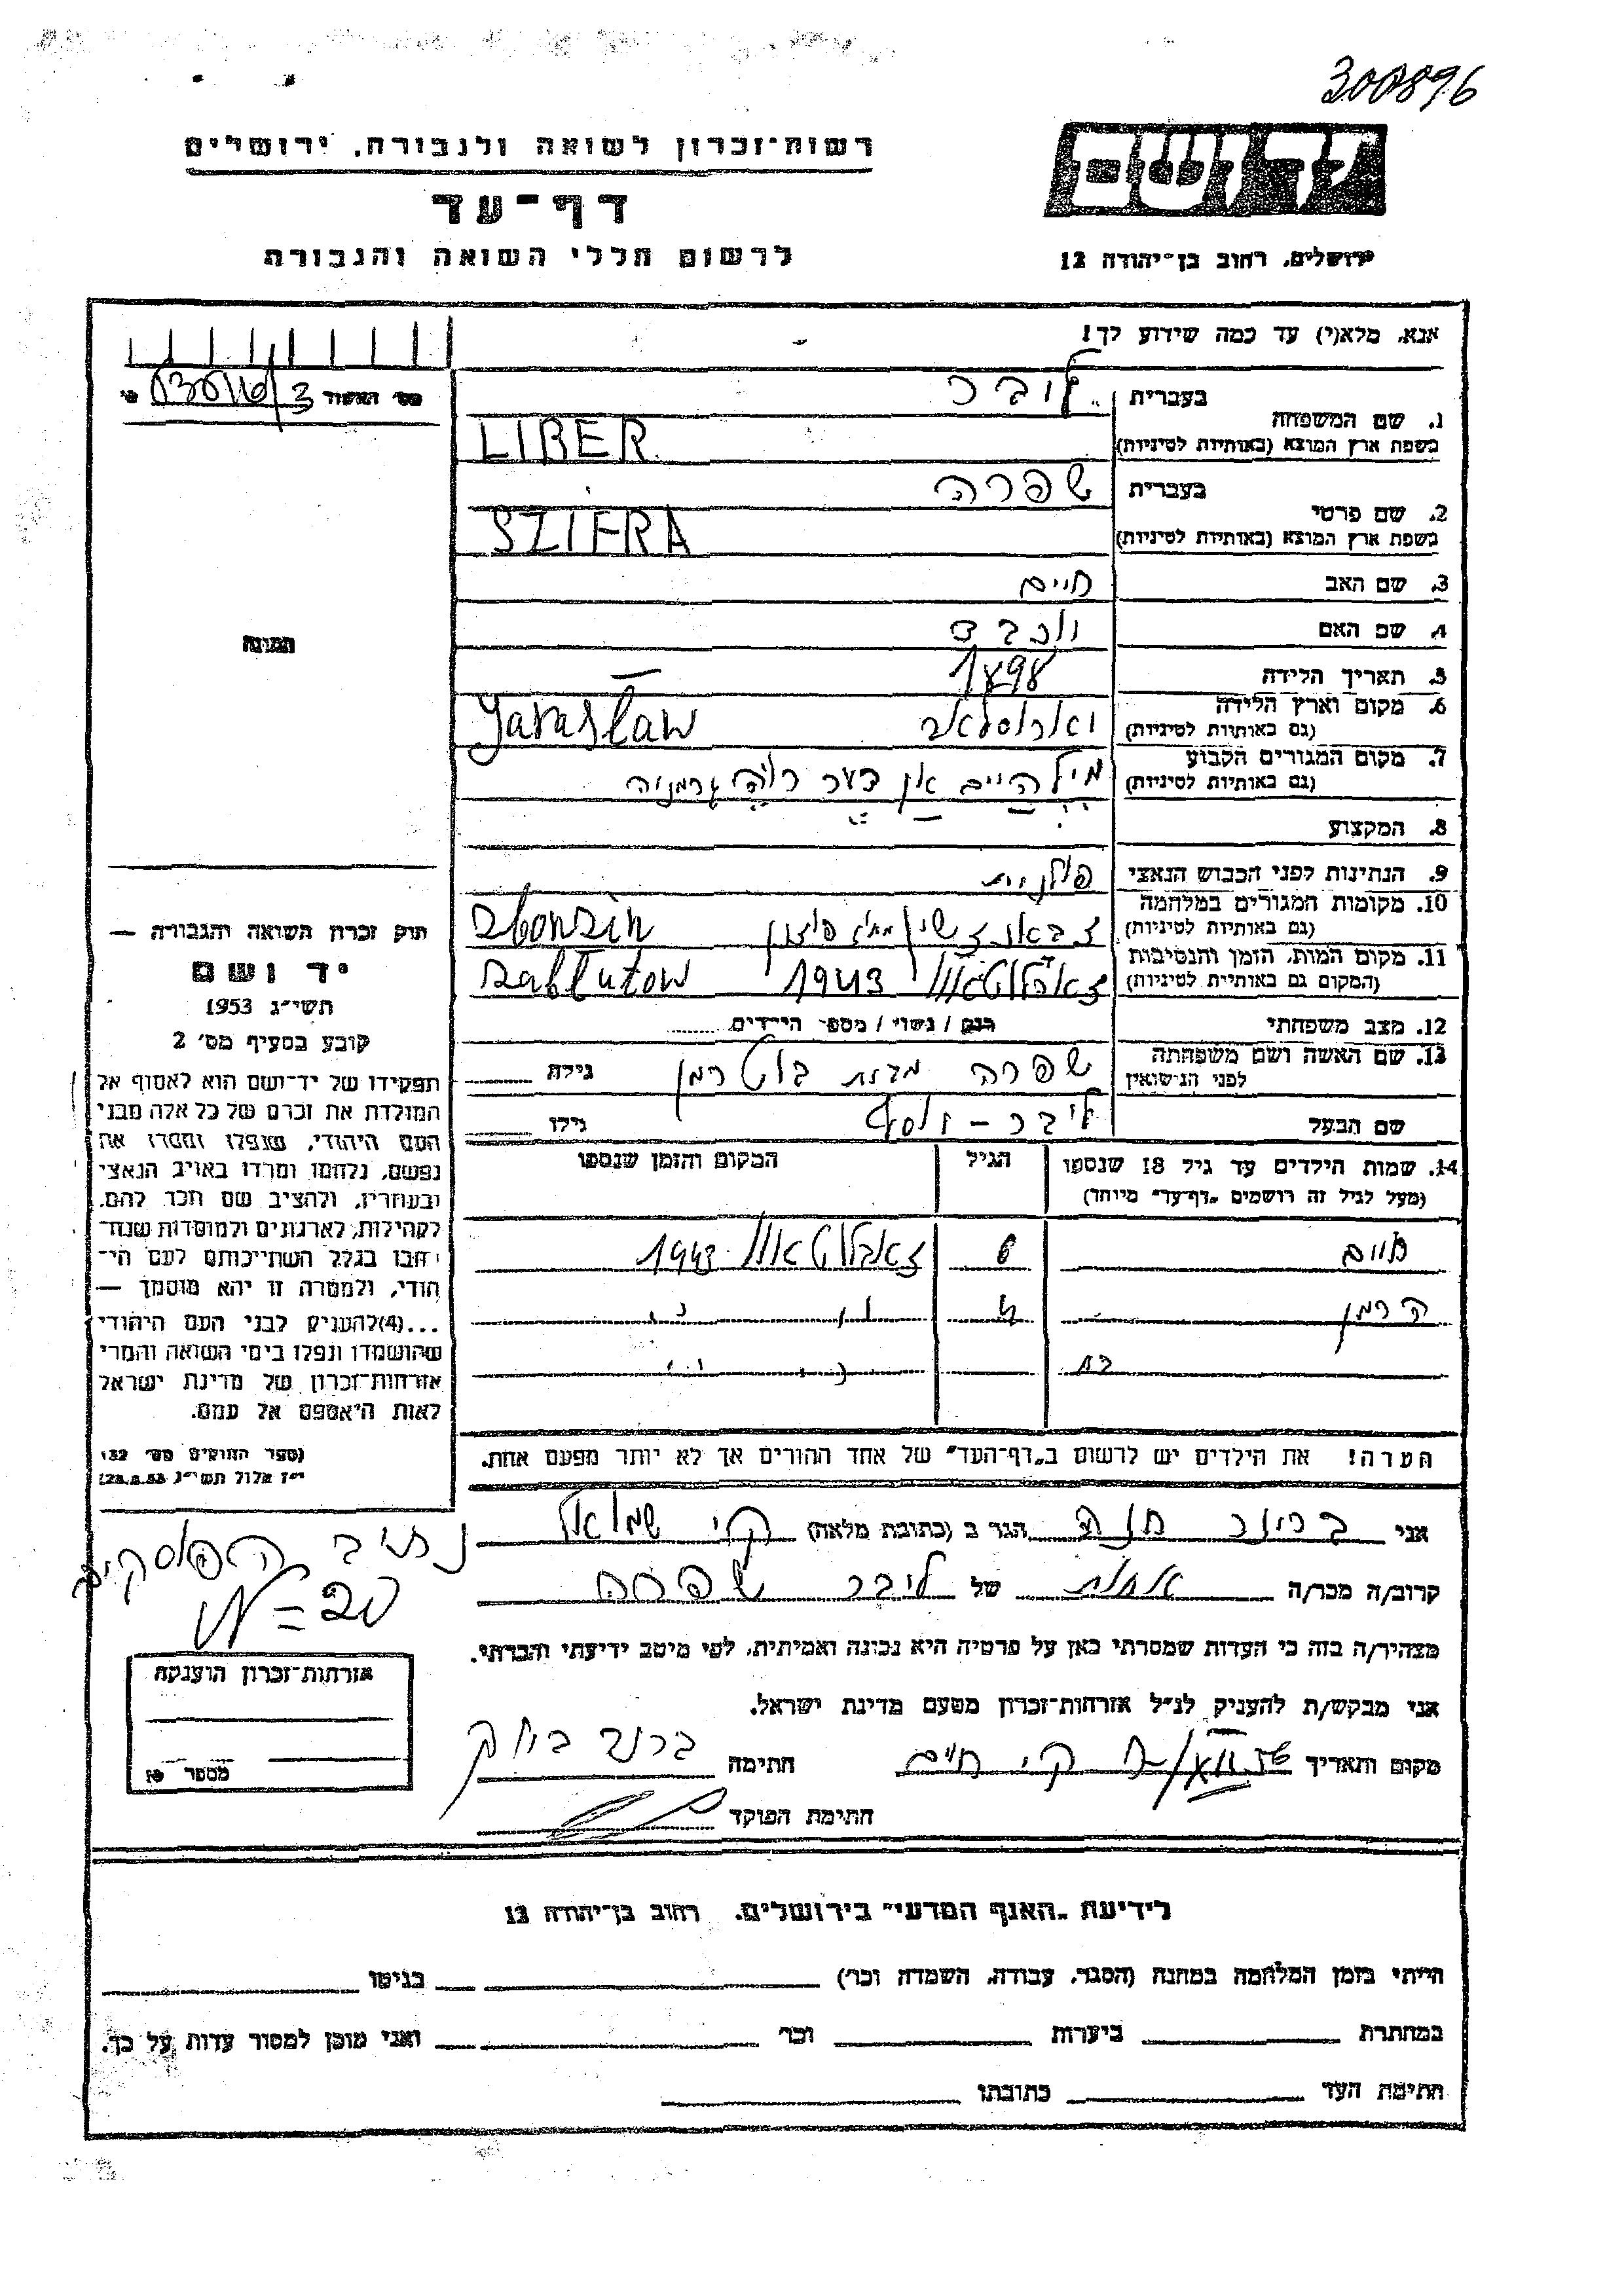 300896
יד ושם
רשות־זכרון לשואה ולגבורה, ירושלים
דף־עד
לרשום חללי השואה והגבורה
ירושלים, רחוב בן־יהודה 12
אנא, מלא(י) עד כמה שידוע לך!
מס׳ האשור
בעברית ליבר
1. שם המשפחה
בשפת ארץ המוצא (באותיות לטיניות) LIBER
בעברית שפרה
2. שם פרטי
בשפת ארץ המוצא (באותיות לטיניות) SZIFRA
3. שם האב חיים
4. שם האם יוכבד
5. תאריך הלידה 1898
6. מקום וארץ הלידה
(גם באותיות לטיניות) יארוסלאב Jaroslaw
7. מקום המגורים הקבוע
(גם באותיות לטיניות) מילהיים אן דער רוהר גרמניה
8. המקצוע
9. הנתינות לפני הכבוש הנאצי פולנית
10. מקומות המגורים במלחמה
(גם באותיות לטיניות) Zbonszin
11. מקום המות, הזמן והנסיבות
(המקום גם באותיות לטיניות) זאבלוטאוו 1943 Zabłutow
12. מצב משפחתי רווק / נשוי / מספר הילדים
13. שם האשה ושם משפחתה
לפני הנישואין שפרה מבית גילה
שם הבעל ליבר - יוסף גילו
14. שמות הילדים עד גיל 18 שנספו
(מעל לגיל זה רושמים „דף־עד״ מיוחד)
הגיל
המקום והזמן שנספו
חיים 6 זאבלוטאוו 1943
הרמן 4 ״ ״
בת ״ ״
הערה! את הילדים יש לרשום ב„דף־העד״ של אחד ההורים אך לא יותר מפעם אחת.
התמונה
חוק זכרון השואה והגבורה —
יד ושם
תשי״ג 1953
קובע בסעיף מס׳ 2
תפקידו של יד־ושם הוא לאסוף אל
המולדת את זכרם של כל אלה מבני
העם היהודי, שנפלו ומסרו את
נפשם, נלחמו ומרדו באויב הנאצי
ובעוזריו, ולהציב שם וזכר להם,
לקהילות, לארגונים ולמוסדות שנח־
רבו בגלל השתייכותם לעם הי־
הודי, ולמטרה זו יהא מוסמך —
...(4) להעניק לבני העם היהודי
שהושמדו ונפלו בימי השואה והמרי
אזרחות־זכרון של מדינת ישראל
לאות היאספם אל עמם.
(ספר החוקים מס׳ 132
י״ז אלול תשי״ג 28.8.53)
אני חנה הגר ב (כתובת מלאה) קרית שמואל
קרוב/ה מכר/ה אחות של ליבר שפרה
מצהיר/ה בזה כי העדות שמסרתי כאן על פרטיה היא נכונה ואמיתית, לפי מיטב ידיעתי והכרתי.
אני מבקש/ת להעניק לנ״ל אזרחות־זכרון מטעם מדינת ישראל.
מקום ותאריך קר׳ חיים חתימה
חתימת הפוקד
אזרחות־זכרון הוענקה
מספר
לידיעת „האגף המדעי״ בירושלים, רחוב בן־יהודה 12
הייתי בזמן המלחמה במחנה (הסגר, עבודה, השמדה וכו׳) בגיטו
במחתרת ביערות וכו׳ ואני מוכן למסור עדות על כך.
חתימת העד כתובתו